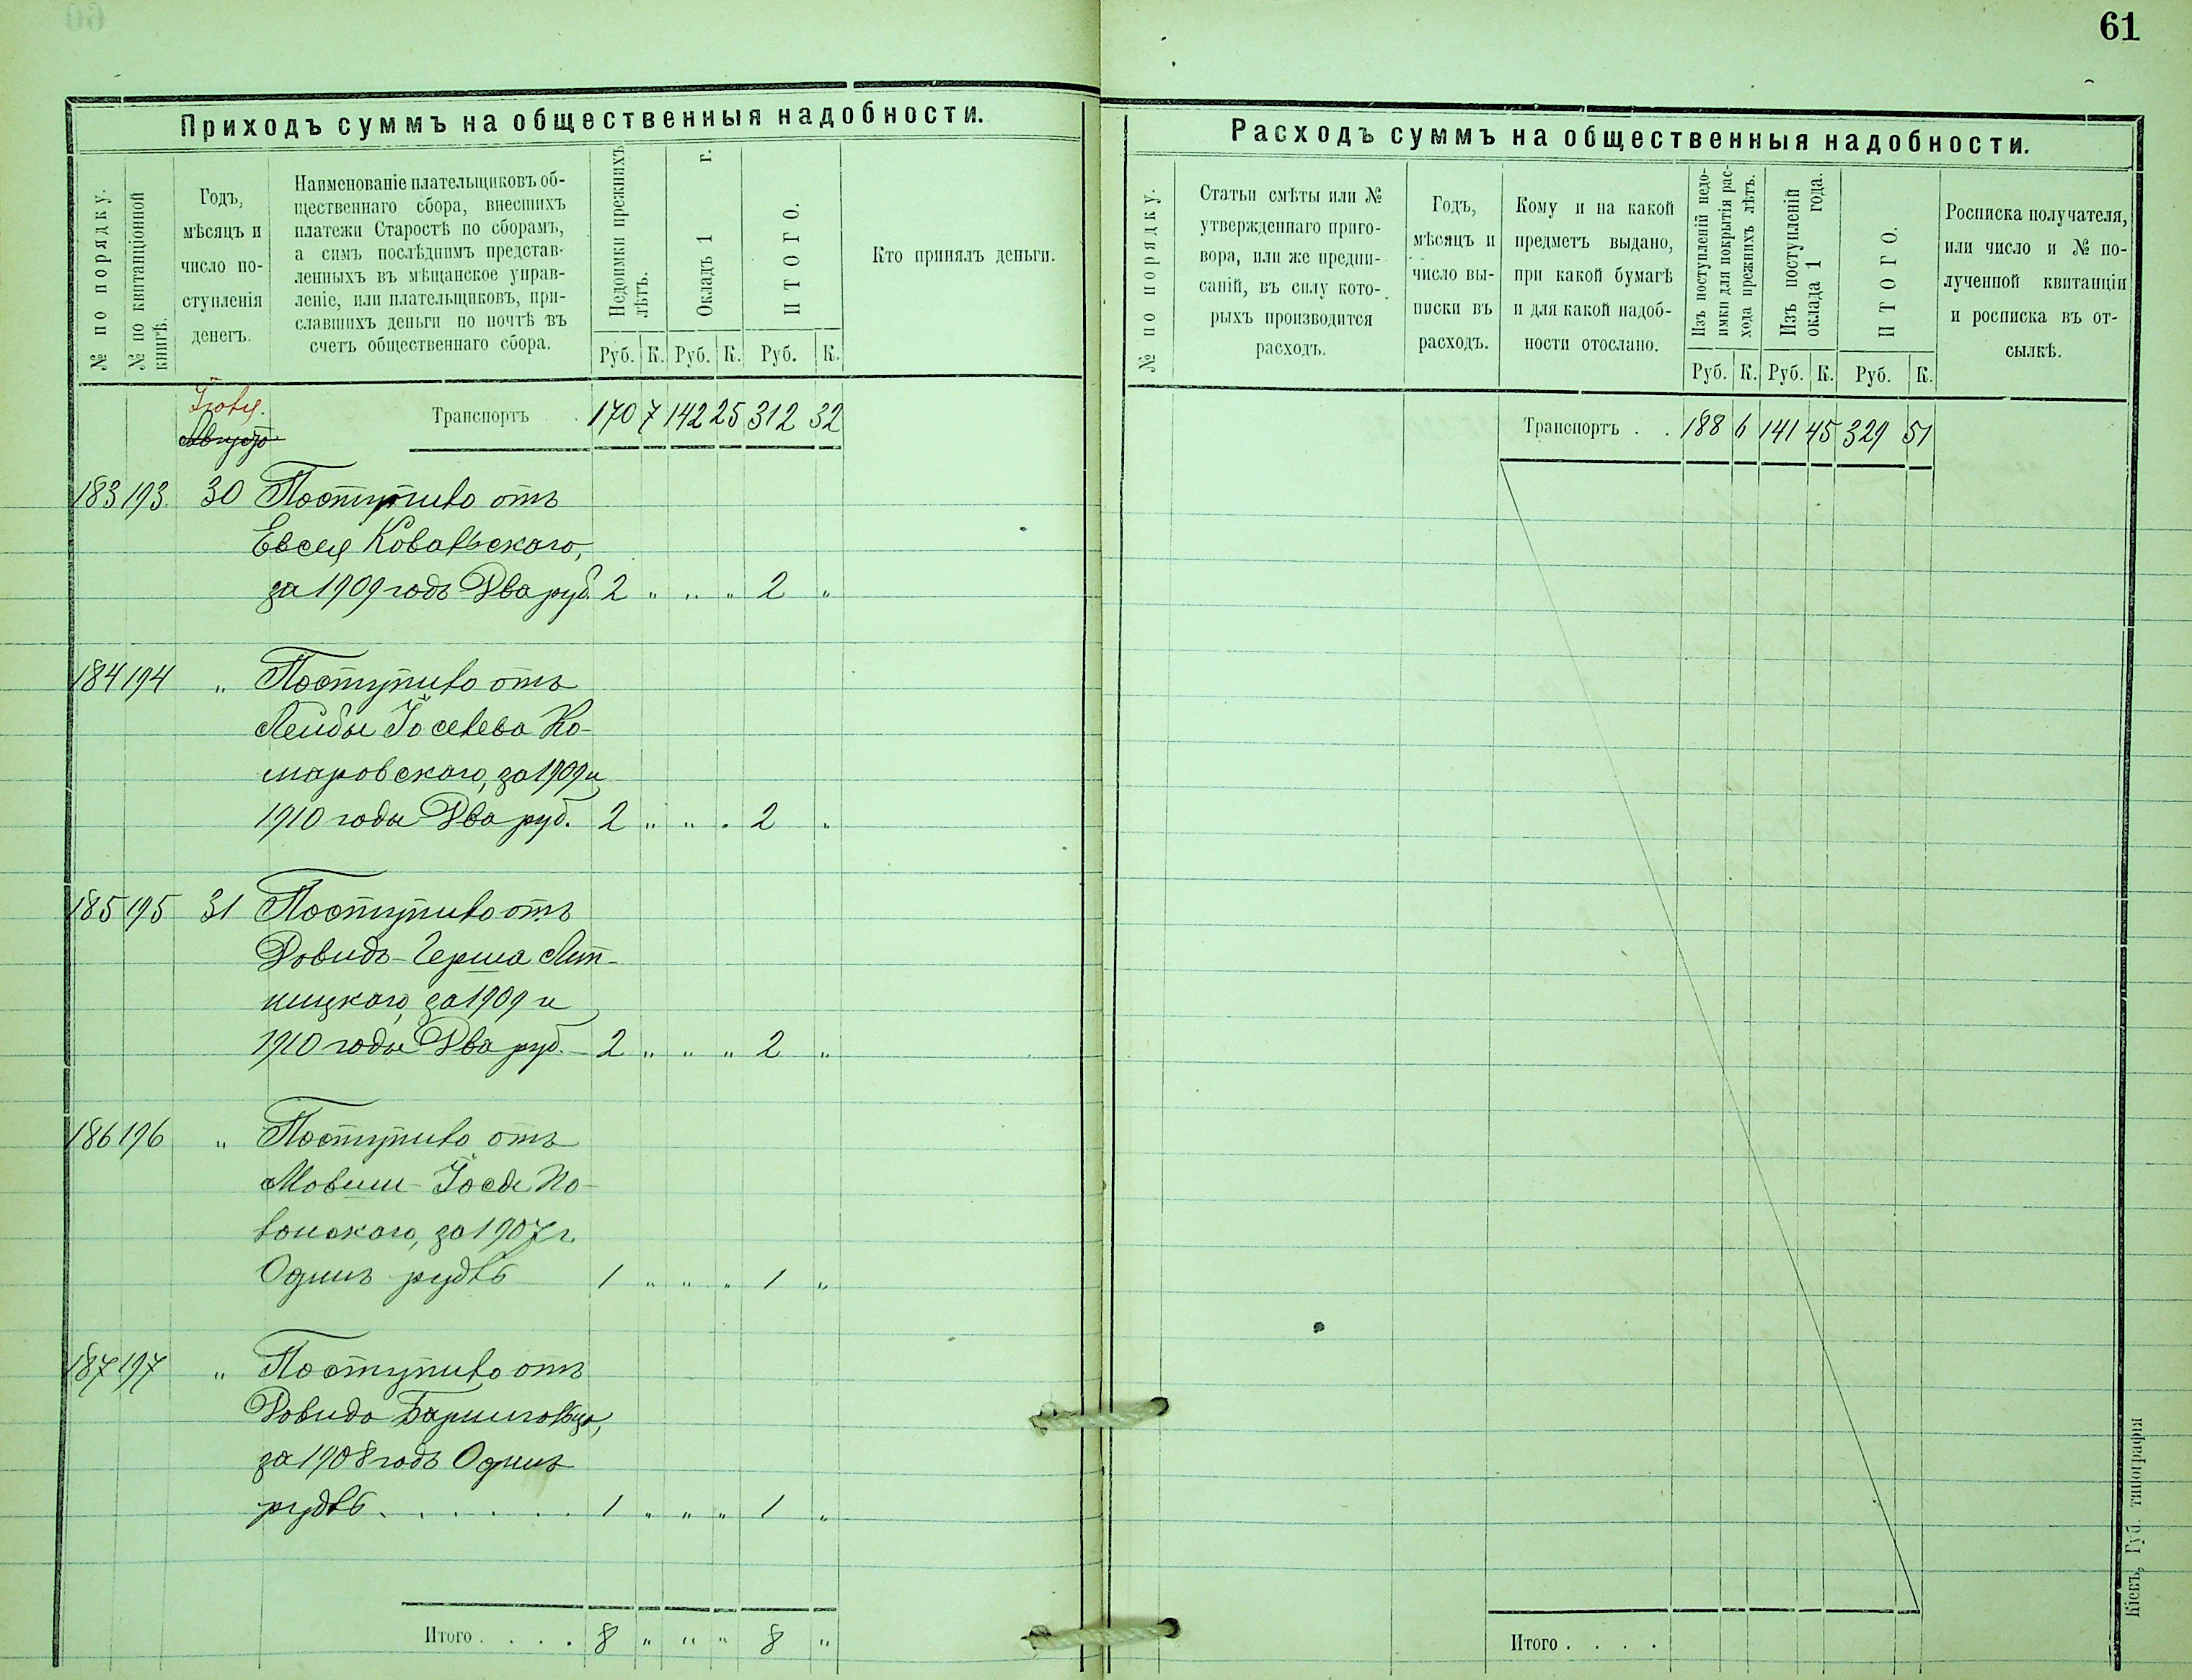 61
Приходъ суммъ на общественныя надобности.
№ по порядку.
№ по квитанціонной книгѣ.
Годъ,
мѣсяцъ и
число по-
ступленія
денегъ.
Наименованіе плательщиковъ об-
щественнаго сбора, внесшихъ
платежи Старостѣ по сборамъ,
а симъ послѣднимъ представ-
ленныхъ въ мѣщанское управ-
леніе, или плательщиковъ, при-
славшихъ деньги по почтѣ въ
счетъ общественнаго сбора.
Недоимки прежнихъ
лѣтъ.
Окладъ 1 г.
ИТОГО.
Руб. К. Руб. К. Руб. К.
Кто принялъ деньги.
Іюль.
Августъ
Транспортъ . 170 7 142 25 312 32
183 193. 30 Поступило отъ
Евсея Ковальскаго,
за 1909 годъ Два руб. 2 " " " 2 "
184 194 " Поступило отъ
Лейбы Іоселева Ко-
маровскаго, за 1909 и
1910 годы Два руб. 2 " " " 2 "
185 195 31 Поступило отъ
Довидъ-Герша Лит-
ницкаго, за 1909 и
1910 годы Два руб. 2 " " " 2 "
186 196 " Поступило отъ
Мовши-Іося По-
лонскаго, за 1907 г.
Одинъ рубль 1 " " " 1 "
187 197 " Поступило отъ
Довида
за 1908 годъ Одинъ
рубль . . . . . . 1 " " " 1 "
Итого . . . . 8 " " " 8 "
Расходъ суммъ на общественныя надобности.
№ по порядку.
Статьи смѣты или №
утвержденнаго приго-
вора, или же предпи-
саній, въ силу кото-
рыхъ производится
расходъ.
Годъ,
мѣсяцъ и
число вы-
писки въ
расходъ.
Кому и на какой
предметъ выдано,
при какой бумагѣ
и для какой надоб-
ности отослано.
Изъ поступленій недо-
имки для покрытія рас-
хода прежнихъ лѣтъ.
Изъ поступленій
оклада 1 года.
ИТОГО.
Руб. К. Руб. К. Руб. К.
Росписка получателя,
или число и № по-
лученной квитанціи
и росписка въ от-
сылкѣ.
Транспортъ . . 188 6 141 45 329 51
Итого . . . .
Кіевъ, Губ. типографія